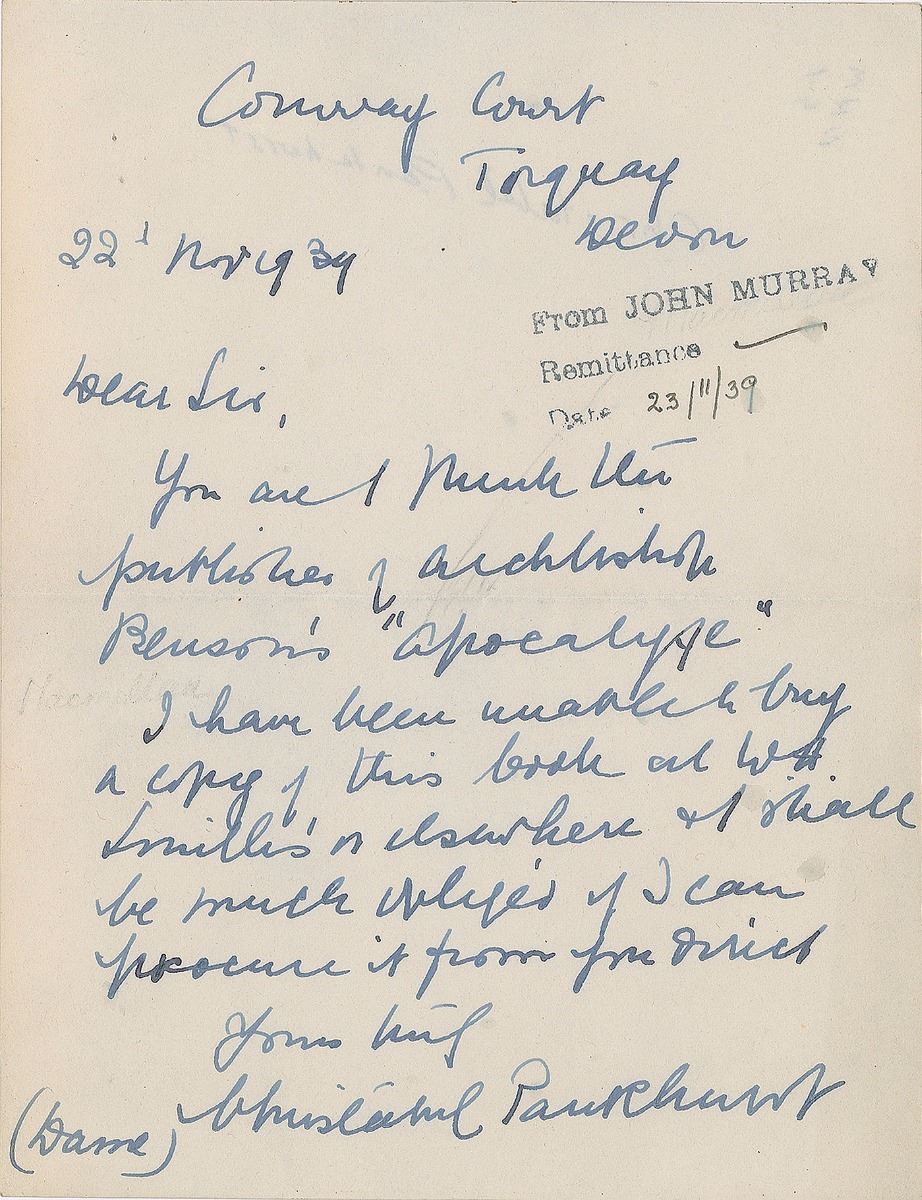 Conway Court
Torquay
Devon
22d Nov 1939
From JOHN MURRAY
Remittance ✓
Date 23/11/39
Dear Sir,
You are I think the
publisher of Archbishop
Benson's "Apocalypse"
Macmillan
I have been unable to buy
a copy of this book at WH
Smith's or elsewhere & I shall
be much obliged if I can
procure it from you direct
Yours truly
Christabel Pankhurst
(Dame)